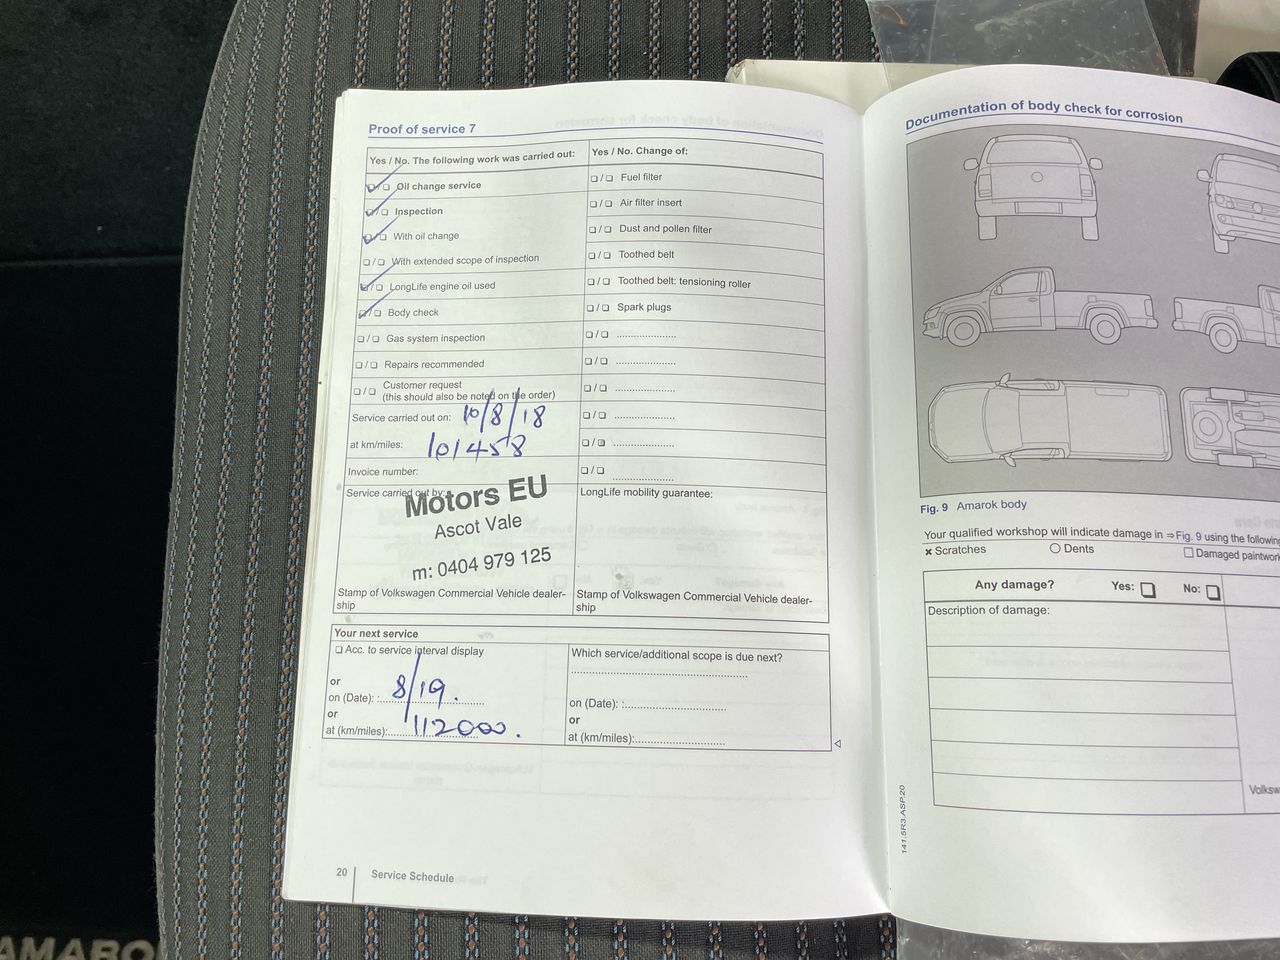 Proof of service 7
Yes / No. The following work was carried out:
☑/☐ Oil change service
☑/☐ Inspection
☑/☐ With oil change
☐/☐ With extended scope of inspection
☑/☐ LongLife engine oil used
☑/☐ Body check
☐/☐ Gas system inspection
☐/☐ Repairs recommended
☐/☐ Customer request
(this should also be noted on the order)
Service carried out on: 10/8/18
at km/miles: 101458
Invoice number:
Service carried out by:
Motors EU
Ascot Vale
m: 0404 979 125
Stamp of Volkswagen Commercial Vehicle dealer-
ship
Yes / No. Change of:
☐/☐ Fuel filter
☐/☐ Air filter insert
☐/☐ Dust and pollen filter
☐/☐ Toothed belt
☐/☐ Toothed belt: tensioning roller
☐/☐ Spark plugs
☐/☐ .....................
☐/☐ .....................
☐/☐ .....................
☐/☐ .....................
☐/☐ .....................
☐/☐ .....................
LongLife mobility guarantee:
Stamp of Volkswagen Commercial Vehicle dealer-
ship
Your next service
☐ Acc. to service interval display
or
on (Date): 8/19.
or
at (km/miles): 112000.
Which service/additional scope is due next?
on (Date):
or
at (km/miles):
20 Service Schedule
Documentation of body check for corrosion
Fig. 9 Amarok body
Your qualified workshop will indicate damage in ⇒ Fig. 9 using the
× Scratches ○ Dents ☐ Damaged
Any damage? Yes: ☐ No: ☐
Description of damage:
141.5R3.ASP.20